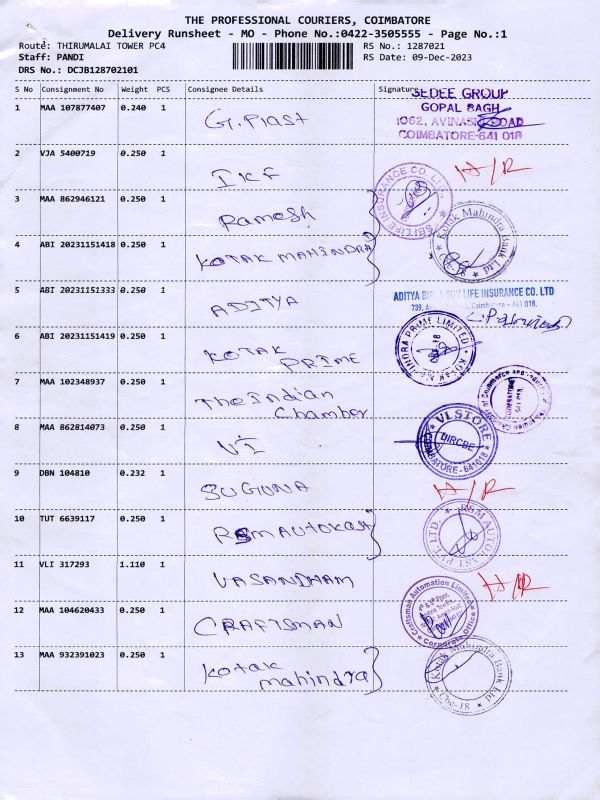 THE PROFESSIONAL COURIERS, COIMBATORE
Delivery Runsheet - MO - Phone No.:0422-3505555 - Page No.:1
Route: THIRUMALAI TOWER PC4 RS No.: 1287021
Staff: PANDI RS Date: 09-Dec-2023
DRS No.: DCJB128702101
S No Consignment No Weight PCS Consignee Details Signature
SEDEE GROUP
GOPAL BAGH
1062, AVINASI ROAD
COIMBATORE-641 018
1 MAA 107877407 0.240 1 G.Plast
2 VJA 5400719 0.250 1 IKF H/R
SBI LIFE INSURANCE CO. LTD.
3 MAA 862946121 0.250 1 Ramesh
4 ABI 20231151418 0.250 1 KOTAK MAHINDRA
Kotak Mahindra Bank Ltd
Cbe-18
5 ABI 20231151333 0.250 1 ADITYA
ADITYA BIRLA SUN LIFE INSURANCE CO. LTD
739, Coimbatore - 641 018.
6 ABI 20231151419 0.250 1 KOTAK PRIME
7 MAA 102348937 0.250 1 The Indian
Chamber
of Commerce and
COIMBATORE
641 018
8 MAA 862814073 0.250 1 VI
VI STORE
DIRCBE
COIMBATORE-641018
9 DBN 104810 0.232 1 SUGUNA H/R
10 TUT 6639117 0.250 1 RSM AUTOKAST
RSM AUTOKAST PVT LTD.
11 VLI 317293 1.110 1 VASANDHAM H/R
12 MAA 104620433 0.250 1 CRAFTSMAN
Craftsman Automation Limited
Corporate Office
13 MAA 932391023 0.250 1 Kotak
mahindra
Kotak Mahindra Bank Ltd
Cbe-18